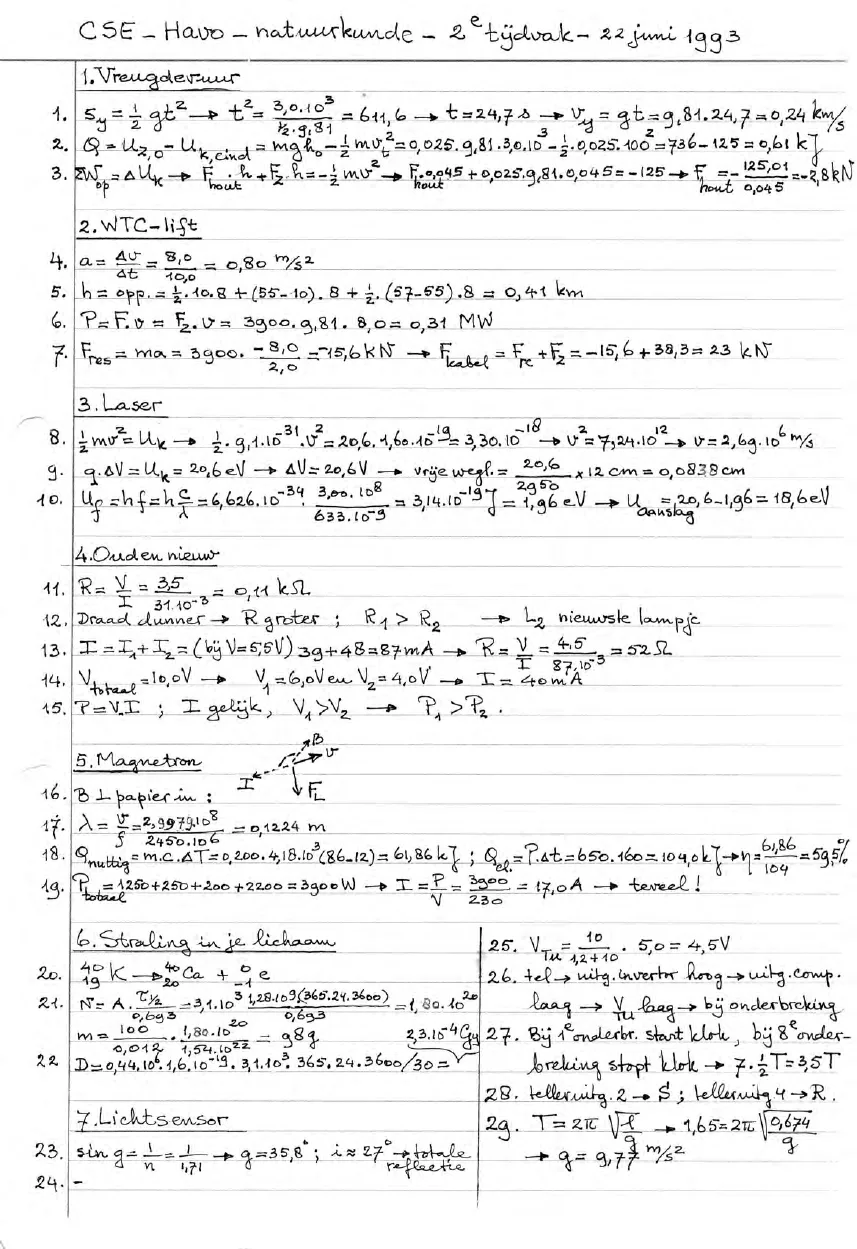 CSE - Havo - natuurkunde - 2e tijdvak - 22 juni 1993
1. Vreugdevuur
1. Sy = ½ gt² → t² = 3,0.10³ / ½.9,81 = 611,6 → t = 24,7 s → Vy = gt = 9,81.24,7 = 0,24 km/s
2. Q = Uz,0 - Uk,eind = mgh₀ - ½ mvt² = 0,025.9,81.3,0.10³ - ½.0,025.100² = 736 - 125 = 0,61 kJ
3. ΣWop = ΔUk → Fhout.h + Fz.h = -½ mv² → Fhout.0,045 + 0,025.9,81.0,045 = -125 → Fhout = -125,01 / 0,045 = -2,8 kN
2. WTC-lift
4. a = Δv/Δt = 8,0/10,0 = 0,80 m/s²
5. h = opp. = ½.10.8 + (55-10).8 + ½.(57-55).8 = 0,41 km
6. P = F.v = Fz.v = 3900.9,81.8,0 = 0,31 MW
7. Fres = ma = 3900. -8,0/2,0 = -15,6 kN → Fkabel = Frc + Fz = -15,6 + 38,3 = 23 kN
3. Laser
8. ½mv² = Uk → ½.9,1.10⁻³¹.v² = 20,6.1,60.10⁻¹⁹ = 3,30.10⁻¹⁸ → v² = 7,24.10¹² → v = 2,69.10⁶ m/s
9. q.ΔV = Uk = 20,6 eV → ΔV = 20,6 V → vrije wegl. = 20,6/2950 x 12 cm = 0,0838 cm
10. Uf = hf = h c/λ = 6,626.10⁻³⁴. 3,00.10⁸ / 633.10⁻⁹ = 3,14.10⁻¹⁹ J = 1,96 eV → Uaanslag = 20,6 - 1,96 = 18,6 eV
4. Oud en nieuw
11. R = V/I = 3,5 / 31.10⁻³ = 0,11 kΩ
12. Draad dunner → R groter ; R₁ > R₂ → L₂ nieuwste lampje
13. I = I₁ + I₂ = (bij V = 5,5V) 39 + 48 = 87 mA → R = V/I = 4,5 / 87.10⁻³ = 52 Ω
14. Vtotaal = 10,0V → V₁ = 6,0V en V₂ = 4,0V → I = 40 mA
15. P = V.I ; I gelijk, V₁ > V₂ → P₁ > P₂.
5. Magnetron
B v I FL
16. B ⊥ papier in :
17. λ = v/f = 2,9979.10⁸ / 2450.10⁶ = 0,1224 m
18. Qnuttig = m.c.ΔT = 0,200.4,18.10³(86-12) = 61,86 kJ ; Qel. = P.Δt = 650.160 = 104,0 kJ → η = 61,86/104 = 59,5%
19. Ptotaal = 1250 + 250 + 200 + 2200 = 3900 W → I = P/V = 3900/230 = 17,0 A → teveel !
6. Straling in je lichaam
20. ⁴⁰₁₉K → ⁴⁰₂₀Ca + ⁰₋₁e
21. N = A. τ½ / 0,693 = 3,1.10³ 1,28.10⁹(365.24.3600) / 0,693 = 1,80.10²⁰
m = 100/0,012 . 1,80.10²⁰ / 1,54.10²² = 98g
22 D = 0,44.10⁶.1,6.10⁻¹⁹.3,1.10³.365.24.3600/30 = 2,3.10⁻⁴ Gy
7. Lichtsensor
23. sin g = 1/n = 1/1,71 → g = 35,8° ; i ≈ 27° → totale reflectie
24. -
25. VTu = 10 / 1,2+10 . 5,0 = 4,5V
26. tel → uitg. invertor hoog → uitg. comp.
laag → VTu laag → bij onderbreking
27. Bij 1e onderbr. start klok, bij 8e onder-
breking stopt klok → 7.½T = 3,5T
28. telleruitg. 2 → S ; telleruitg 4 → R.
29. T = 2π √(l/g) → 1,65 = 2π √(0,674/g)
→ g = 9,77 m/s²